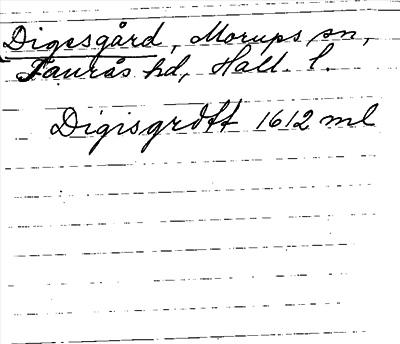 Digesgård, Morups sn,
Faurås hd, Hall. l.
Digisgrdtt 1612 ml